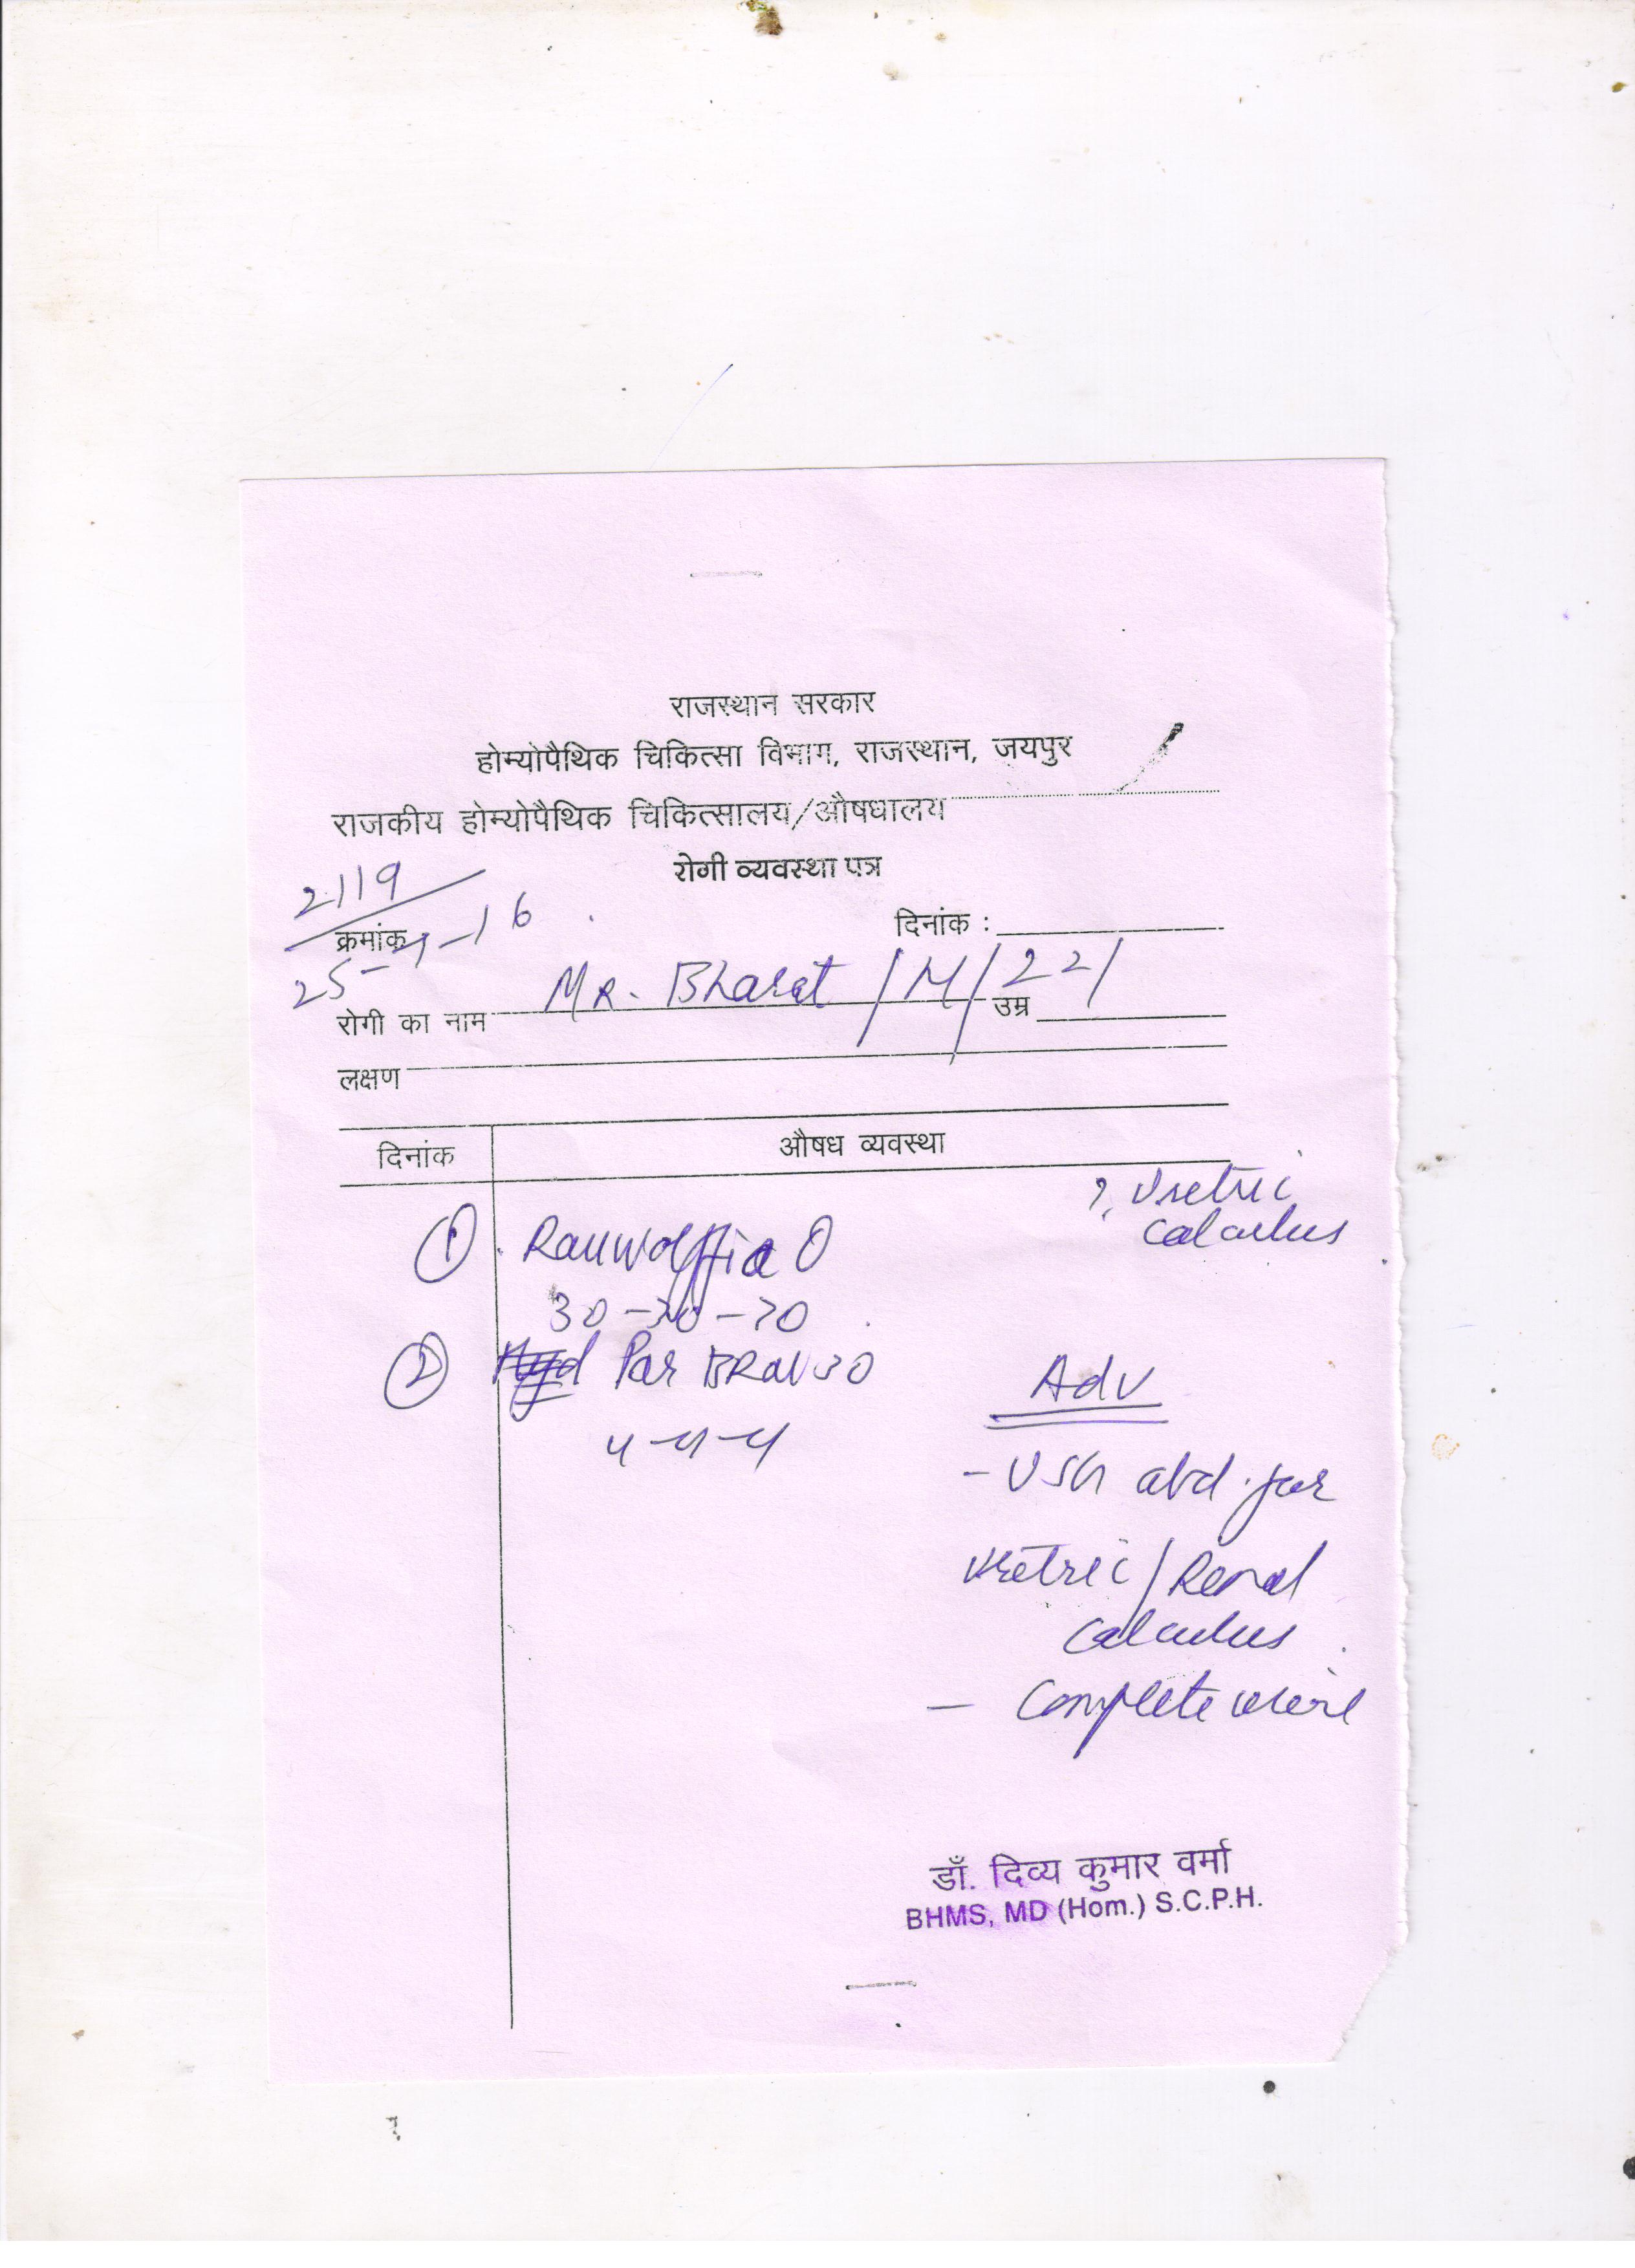 राजस्थान सरकार
होम्योपैथिक चिकित्सा विभाग, राजस्थान, जयपुर
राजकीय होम्योपैथिक चिकित्सालय/औषधालय
रोगी व्यवस्था पत्र
2119
क्रमांक
दिनांक :
रोगी का नाम Mr. Bharat /M/ 22/ उम्र
लक्षण
दिनांक औषध व्यवस्था
?. Uretric
calculus
① Rauwolffia
② Par BRav 30
4-4-4
Adv
- USG abd. for
uretric/Renal
calculus
- Complete urine
डॉ. दिव्य कुमार वर्मा
BHMS, MD (Hom.) S.C.P.H.